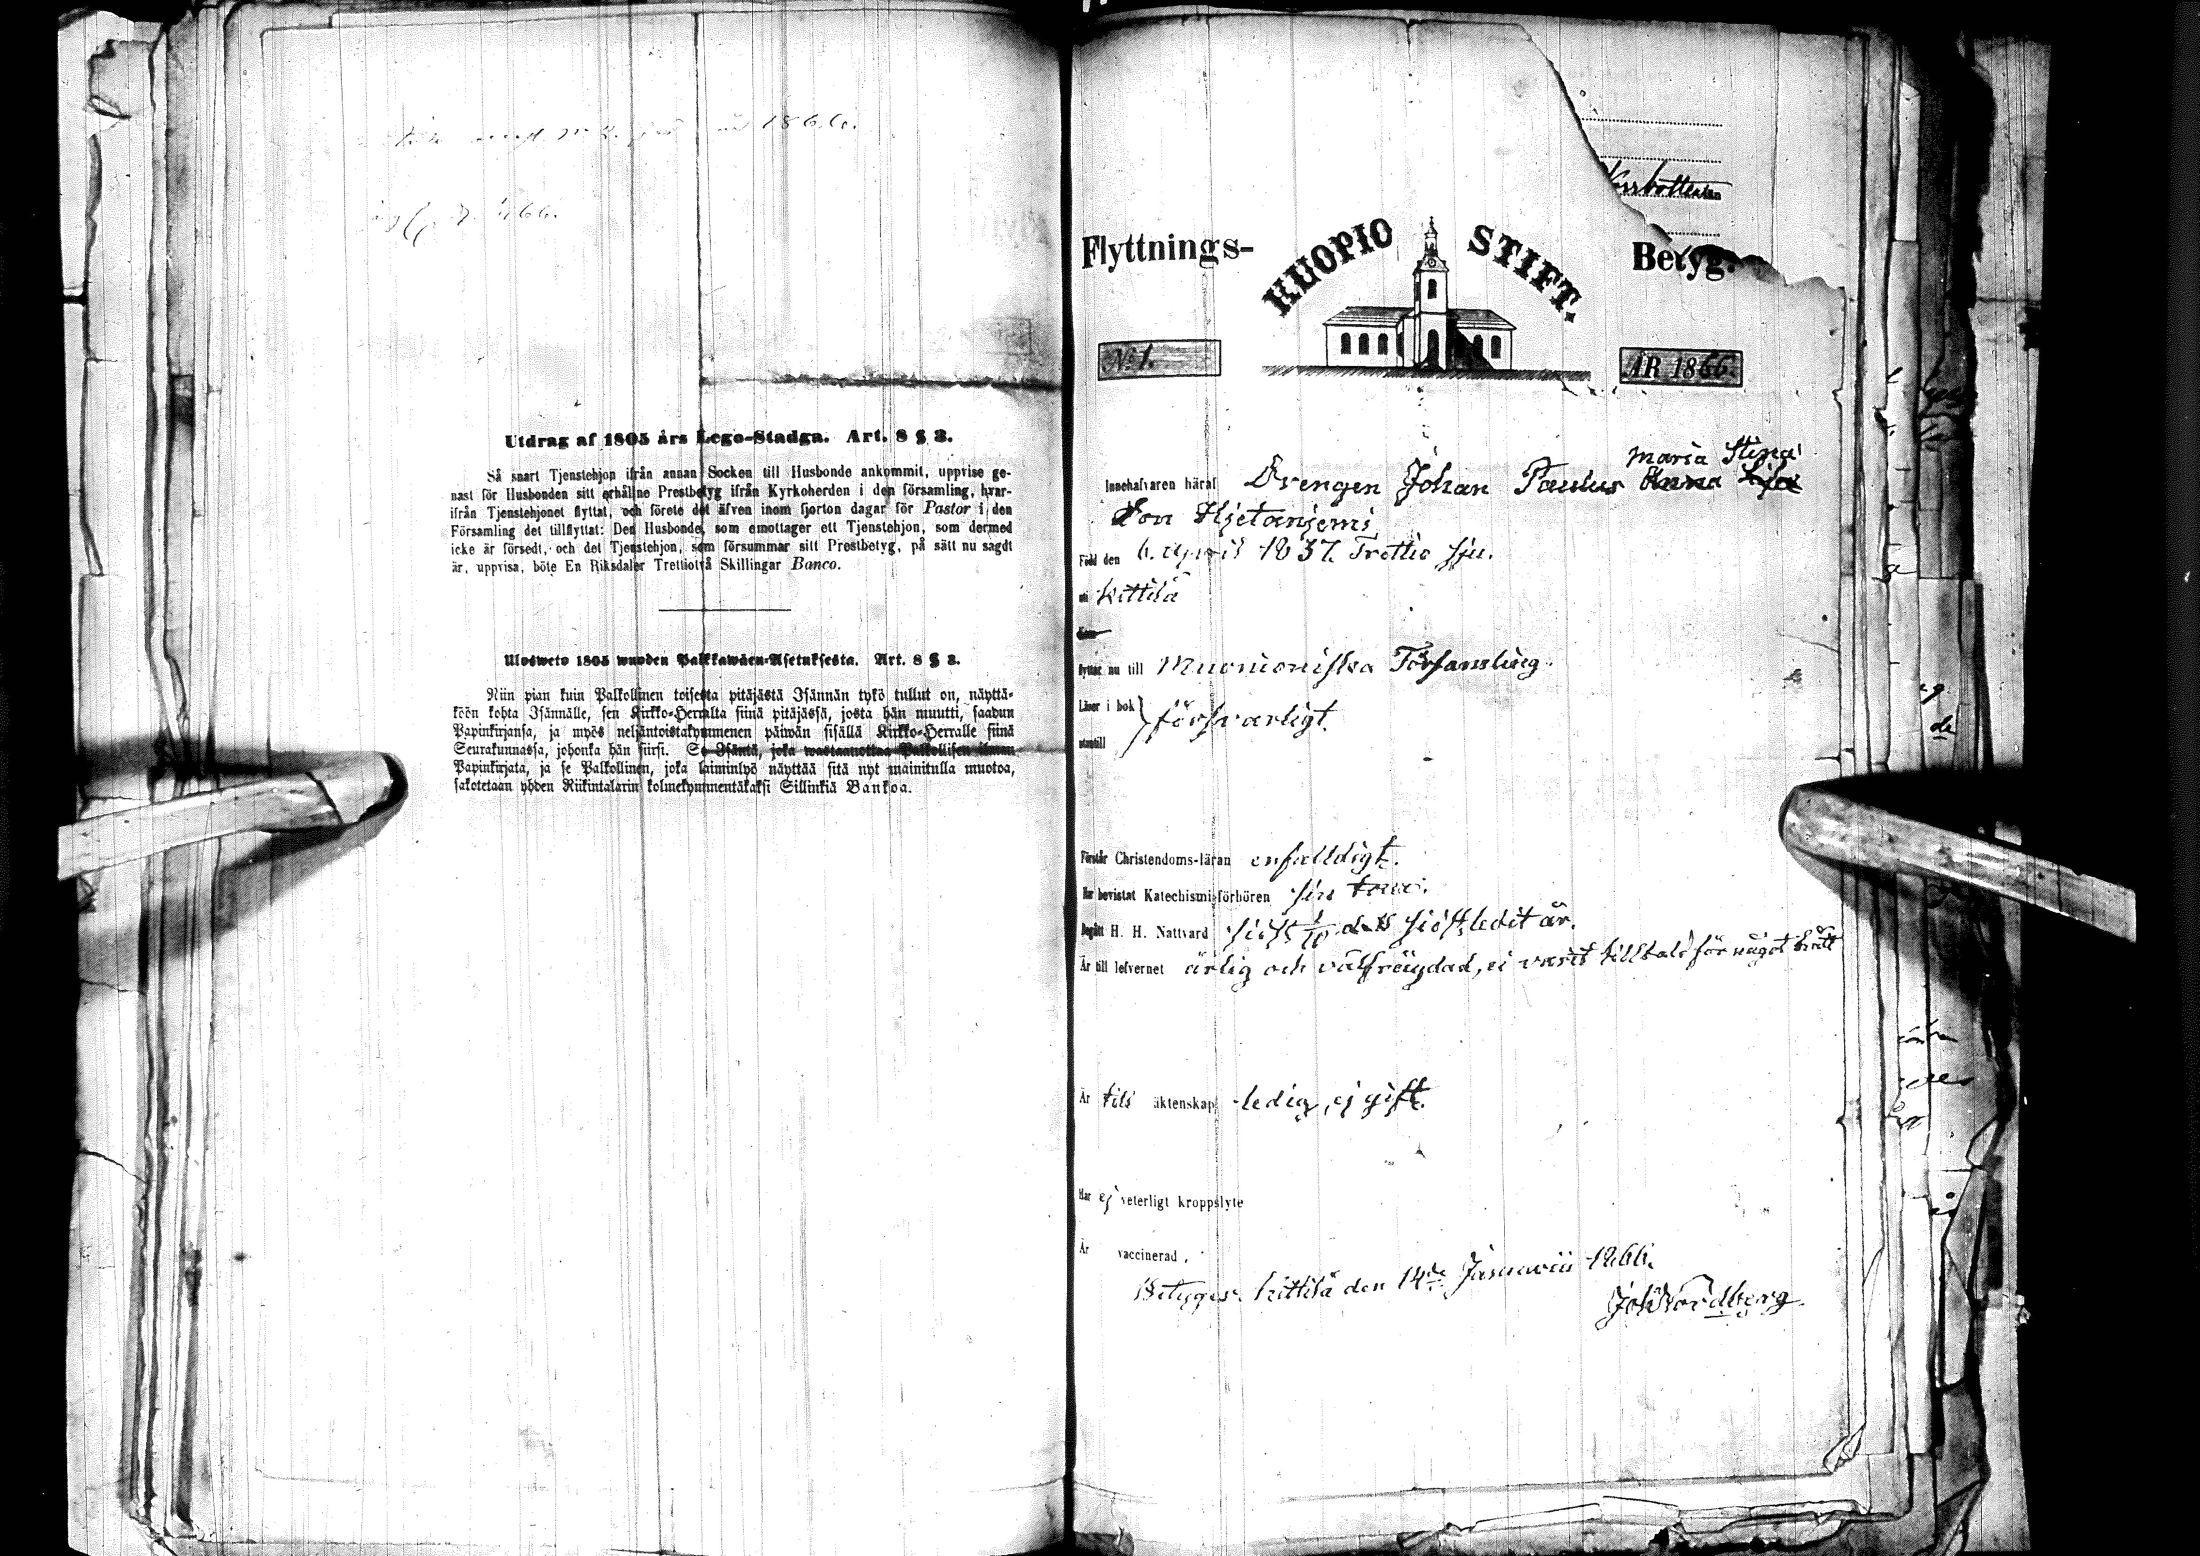 1866.
Utdrag af 1805 års Lego-Stadga. Art. 8 § 3.
Så snart Tjenstehjon ifrån annan Socken till Husbonde ankommit, uppvise ge-
nast för Husbonden sitt erhållne Prestbetyg ifrån Kyrkoherden i den församling, hvar-
ifrån Tjenstehjonet flyttat, och förete det äfven inom fjorton dagar för Pastor i den
Församling det tillflyttat: Den Husbonde, som emottager ett Tjenstehjon, som dermed
icke är försedt, och det Tjenstehjon, som försummar sitt Prestbetyg, på sätt nu sagdt
är, uppvisa, böte En Riksdaler Trettiotvå Skillingar Banco.
Ulosweto 1805 wuoden Palkkawäen-Asetuksesta. Art. 8 § 3.
Niin pian kuin Palkollinen toisesta pitäjästä Isännän tykö tullut on, näyttä-
köön kohta Isännälle, sen Kirkko-Herralta siinä pitäjässä, josta hän muutti, saadun
Papinkirjansa, ja myös neljäntoistakymmenen päiwän sisällä Kirkko-Herralle siinä
Seurakunnassa, johonka hän siirsi. Se Isäntä, joka wastaanottaa Palkollisen ilman
Papinkirjata, ja se Palkollinen, joka laiminlyö näyttää sitä nyt mainitulla muotoa,
sakotetaan yhden Riikintalarin kolmekymmentäkaksi Sillinkiä Bankoa.
Norrbotten
Flyttnings- KUOPIO STIFT. Betyg.
No 1. ÅR 1866.
Maria Stina
Innehafvaren häraf Drengen Johan Paulus Anna Lisa
Son Hjetanjemi
Född den 6. April 1837. Trettio sju.
uti Kittilä
Kom
flyttar nu till Muonioniska Församling.
Läser i bok
utantill } försvarligt.
Förstår Christendoms-läran enfalldigt.
Har bevistat Katechismi-förhören sin tour.
Begått H. H. Nattvard sist 1/10 det sistledit år.
Är till lefvernet ärlig och välfräjdad, ej varit tilltald för något brott
Är till äktenskap ledig, ej gift.
Har ej veterligt kroppslyte
Är vaccinerad.
Betygar. Kittilä den 14de Januarii 1866.
Joh Nordberg.